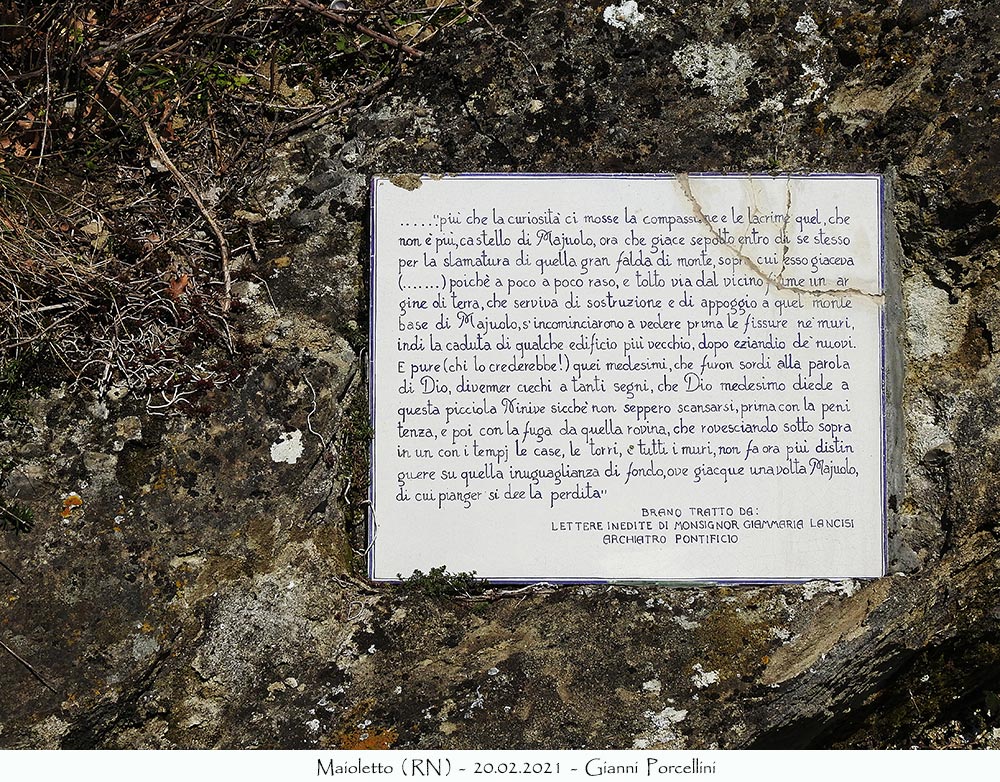 ......"più che la curiosità ci mosse la compassione e le lacrime quel, che
non è più, castello di Majuolo, ora che giace sepolto entro di se stesso
per la slamatura di quella gran falda di monte, sopra cui esso giaceva
(......) poichè a poco a poco raso, e tolto via dal vicino fiume un ar
gine di terra, che serviva di sostruzione e di appoggio a quel monte
base di Majuolo, s'incominciarono a vedere prima le fissure ne' muri,
indi la caduta di qualche edificio più vecchio, dopo eziandio de' nuovi.
E pure (chi lo crederebbe!) quei medesimi, che furon sordi alla parola
di Dio, divenner ciechi a tanti segni, che Dio medesimo diede a
questa picciola Ninive sicchè non seppero scansarsi, prima con la peni
tenza, e poi con la fuga da quella rovina, che rovesciando sotto sopra
in un con i tempj le case, le torri, e tutti i muri, non fa ora più distin
guere su quella inuguaglianza di fondo, ove giacque una volta Majuolo,
di cui pianger si dee la perdita"
BRANO TRATTO DA:
LETTERE INEDITE DI MONSIGNOR GIAMMARIA LANCISI
ARCHIATRO PONTIFICIO
Maioletto (RN) - 20.02.2021 - Gianni Porcellini